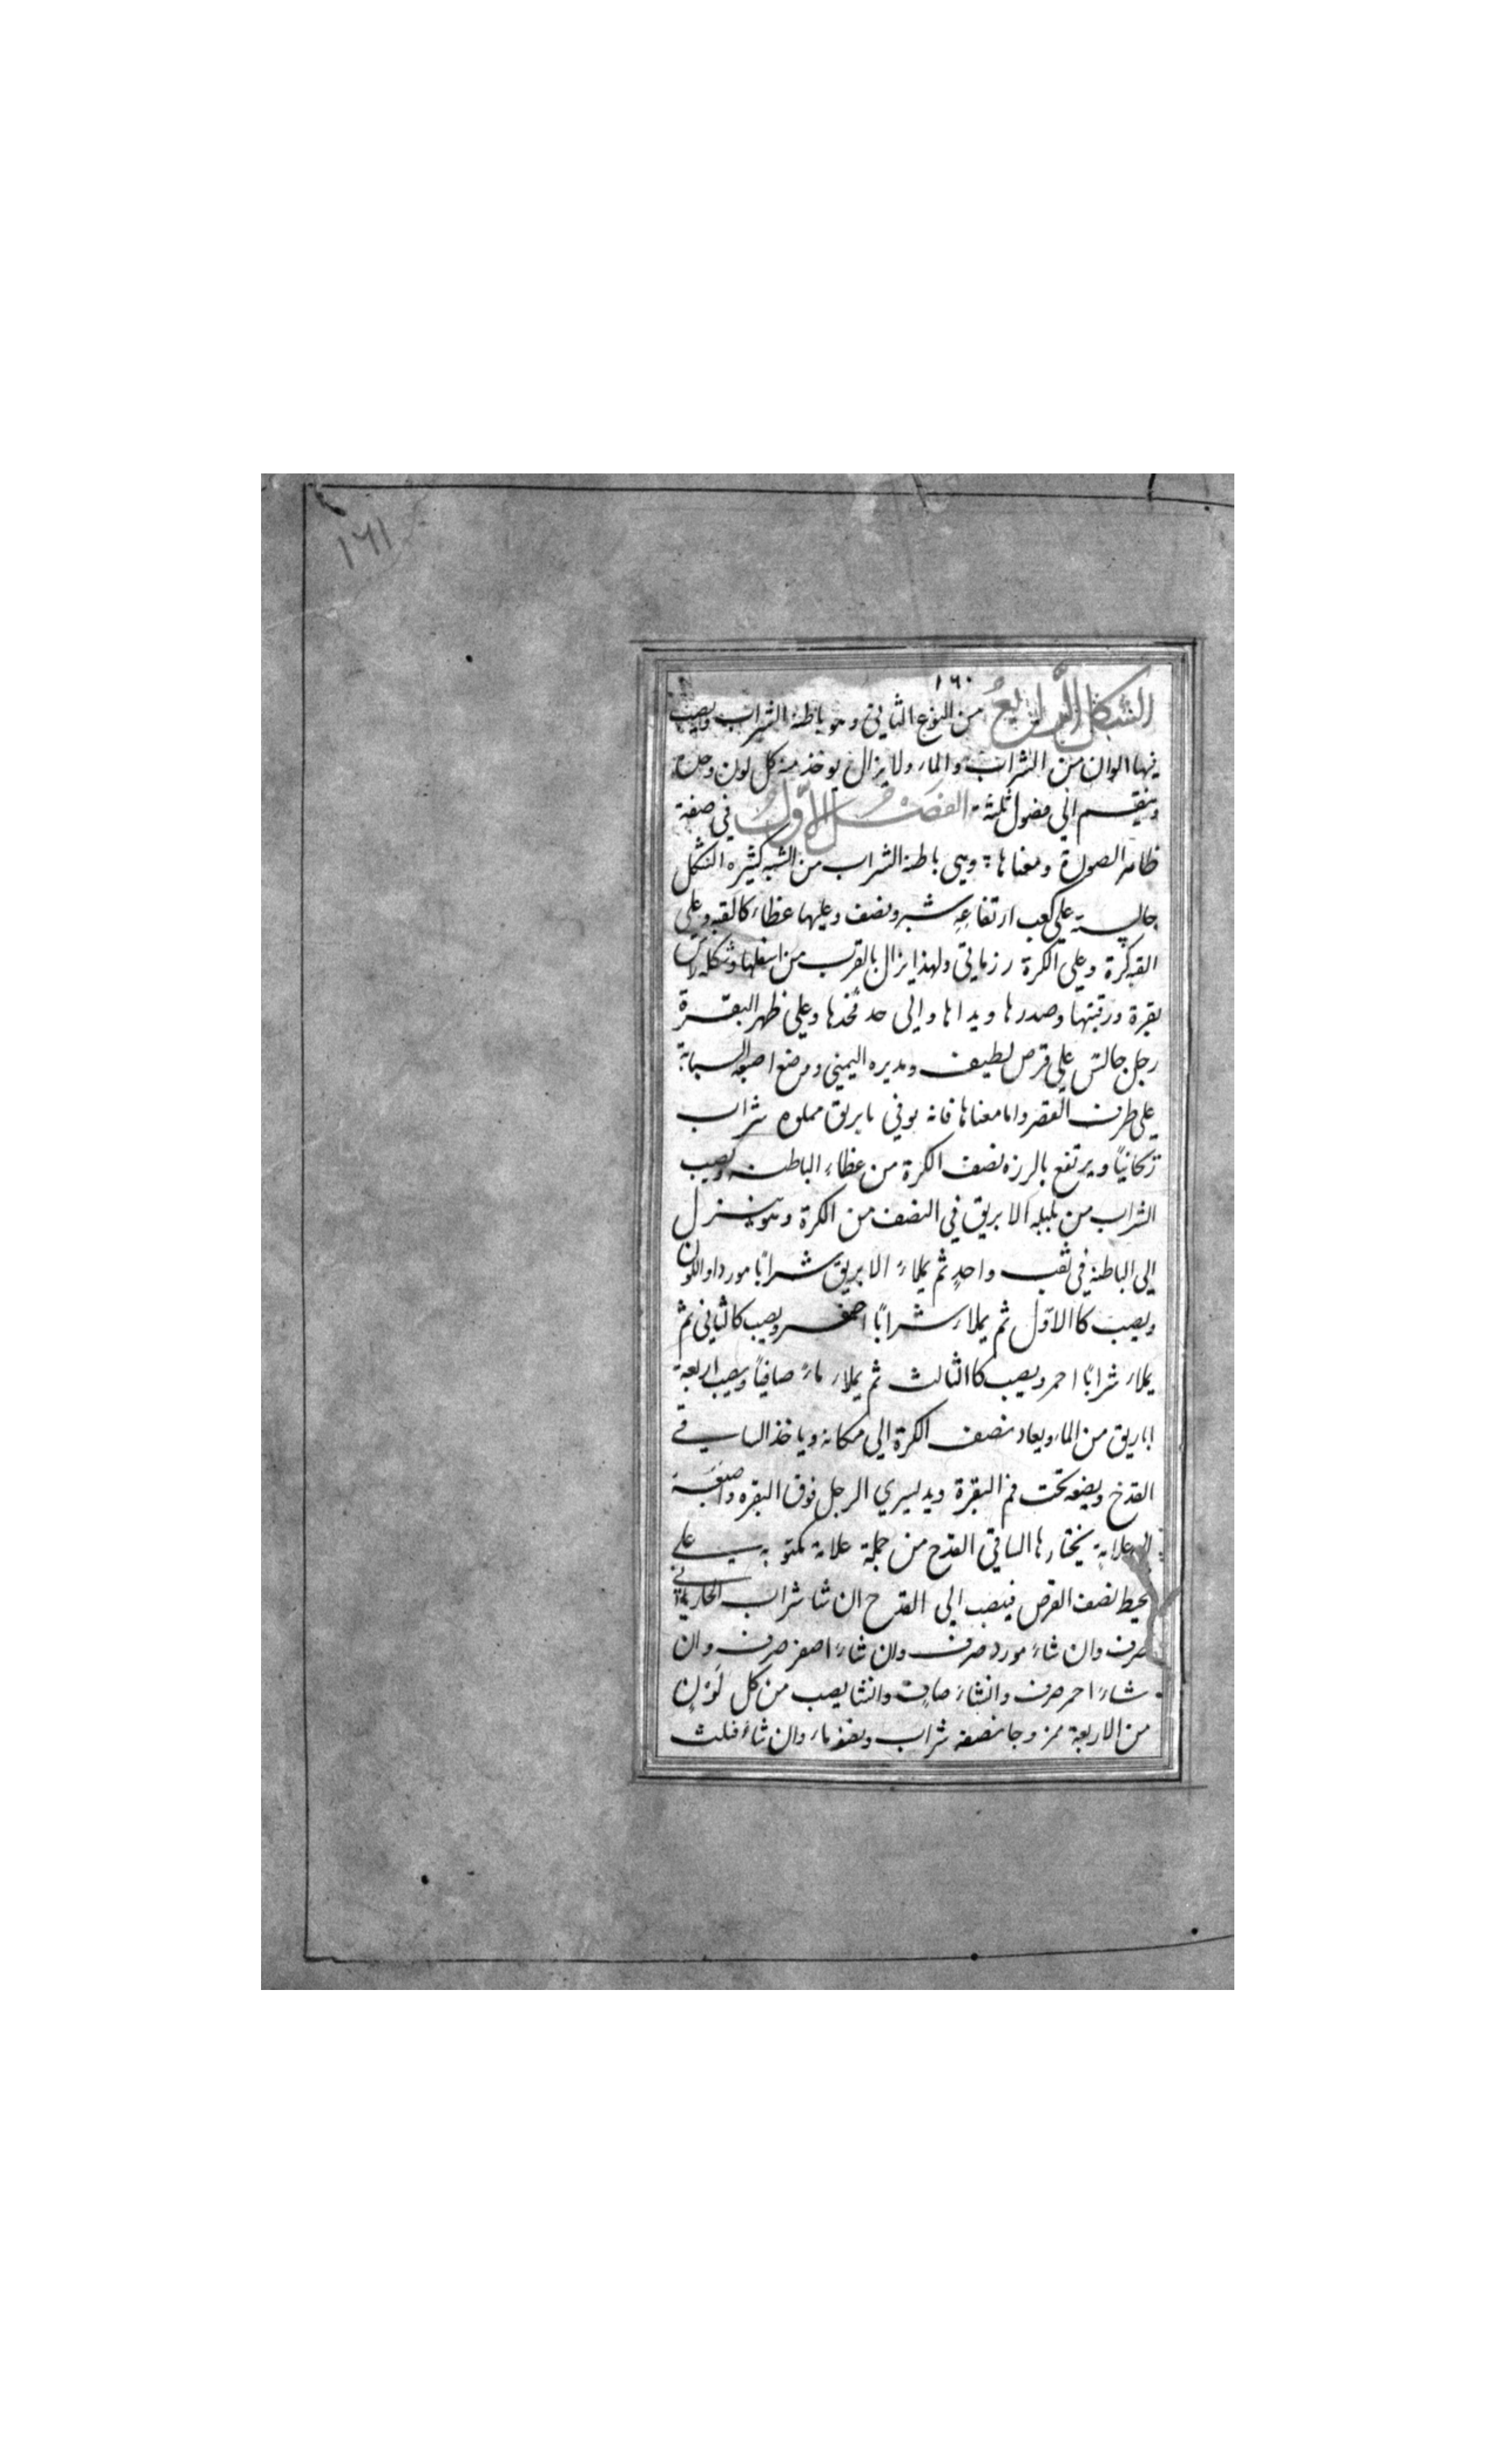 ١٦١
١٦٠
الشكل الرابع من النوع الثاني وهو باطية الشراب ويصب
فيها الوان من الشراب والماء ولا يزال يوخذ منه كل لون وحده
وينقسم الي فصول ثلثة الفصل الاول في صفة
ظاهر الصورة ومعناها وهي باطية الشراب من الشبه كثيره الشكل
جالسة علي كعب ارتفاعه شبر ونصف وعليها غطاء كالقبه وعلي
القبه كرة وعلي الكرة رزماتي ولهذا يزال بالقرب من اسفلها وشكله راس
بقرة ورقبتها وصدرها ويداها والي حد فخذها وعلي ظهر البقرة
رجل جالس علي قرص لطيف ومديره اليمني ووضع اصبعه السبابة
علي طرف القصر واما معناها فانه يوتي بابريق مملوه شراب
ريحانيا ويرتفع بالرزه نصف الكرة من غطاء الباطنه ويصب
الشراب من بلبله الابريق في النصف من الكرة وهو ينزل
الي الباطية في ثقب واحد ثم يملاء الابريق شرابا مورد اواللون
ويصب كاالاول ثم يملاء شرابا اصفر ويصب كالثاني ثم
يملاء شرابا احمر ويصب كاالثالث ثم يملاء ماء صافيا ويصب اربعة
اباريق من الماء ويعاد نصف الكرة الي مكانه وياخذ الساقي
القدح ويضعه تحت فم البقرة ويد ليسري الرجل فوق البقره واصبعه
الي علامة يختارها الساقي القدح من جملة علامة مكتوبه علي
محيط نصف القرص فينصب الي القدح ان شا شراب الحاريحاني
صرف وان شاء مورد صرف وان شاء اصفر صرف وان
شاء احمر صرف وانشاء صاف وانشا يصب من كل لون
من الاربعة ممزوجا نصفه شراب ونصفه ماء وان شاء فثلث